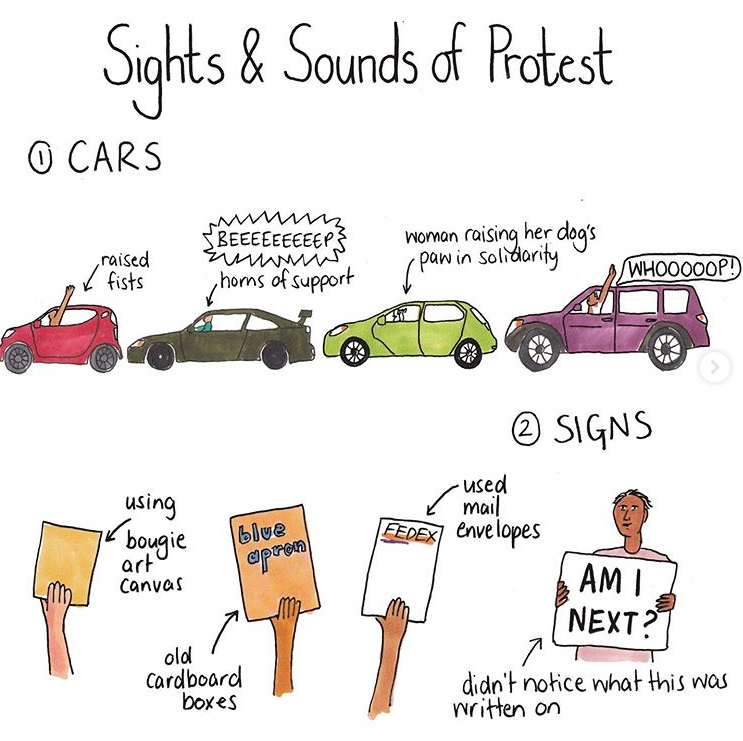 Sights & Sounds of Protest
① CARS
raised
fists
BEEEEEEEEEP
horns of support
woman raising her dog's
paw in solidarity
WHOOOOOP!
② SIGNS
using
bougie
art
canvas
blue
apron
old
cardboard
boxes
FEDEX
used
mail
envelopes
AM I
NEXT?
didn't notice what this was
written on